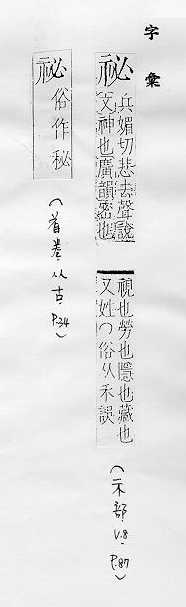 字彙
祕
兵媚切悲去聲說
文神也廣韻密也
視也勞也隱也藏也
又姓○俗从禾誤
(示部.V.8.P.87)
祕俗作秘
(首卷.从古.P.34)